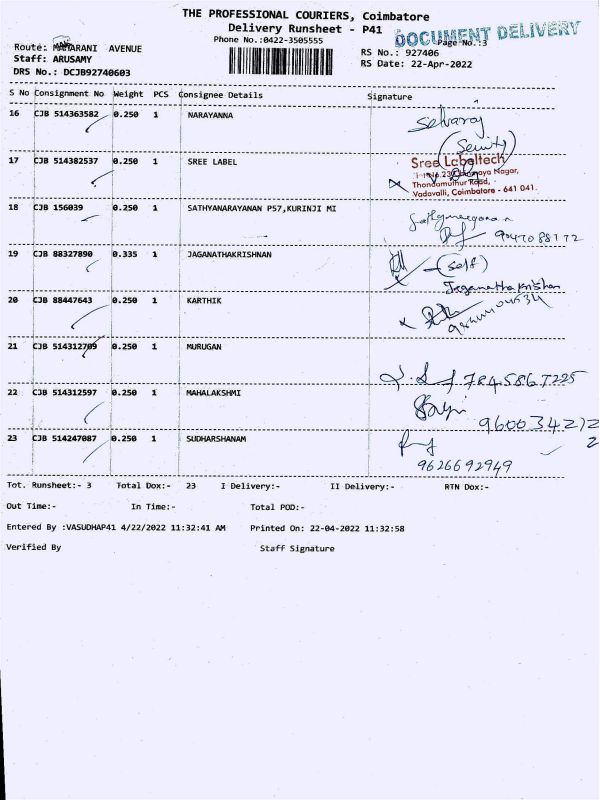 THE PROFESSIONAL COURIERS, Coimbatore
Delivery Runsheet - P41
DOCUMENT DELIVERY
Phone No.:0422-3505555
Page No.:3
Route: MAHARANI AVENUE
RS No.: 927406
Staff: ARUSAMY
RS Date: 22-Apr-2022
DRS No.: DCJB92740603
S No Consignment No Weight PCS Consignee Details Signature
16 CJB 514363582 0.250 1 NARAYANNA Selvaraj
17 CJB 514382537 0.250 1 SREE LABEL Sree Labeltech
Nagar,
Thondamuthur Road,
Vadavalli, Coimbatore - 641 041.
18 CJB 156039 0.250 1 SATHYANARAYANAN P57,KURINJI MI Sathyanarayanan
19 CJB 88327890 0.335 1 JAGANATHAKRISHNAN (self)
Jaganatha krishnan
20 CJB 88447643 0.250 1 KARTHIK
21 CJB 514312709 0.250 1 MURUGAN
7845867225
22 CJB 514312597 0.250 1 MAHALAKSHMI
9600342122
23 CJB 514247087 0.250 1 SUDHARSHANAM
9626692949
Tot. Runsheet:- 3 Total Dox:- 23 I Delivery:- II Delivery:- RTN Dox:-
Out Time:- In Time:- Total POD:-
Entered By :VASUDHAP41 4/22/2022 11:32:41 AM Printed On: 22-04-2022 11:32:58
Verified By Staff Signature